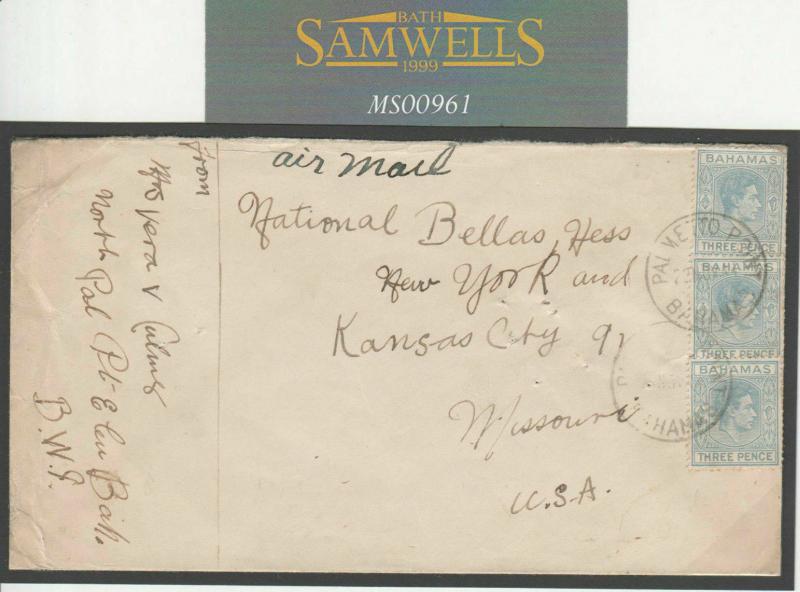 BATH
SAMWELLS
1999
MS00961
air mail
National Bellas Hess
New York and
Kansas City 9
Missouri
U.S.A.
from
Mrs Vera V Culmer
North Pal Pt E leu Bah.
B.W.I.
BAHAMAS
THREE PENCE
BAHAMAS
THREE PENCE
BAHAMAS
THREE PENCE
PALMETTO POINT
BAHAMAS
BAHAMAS